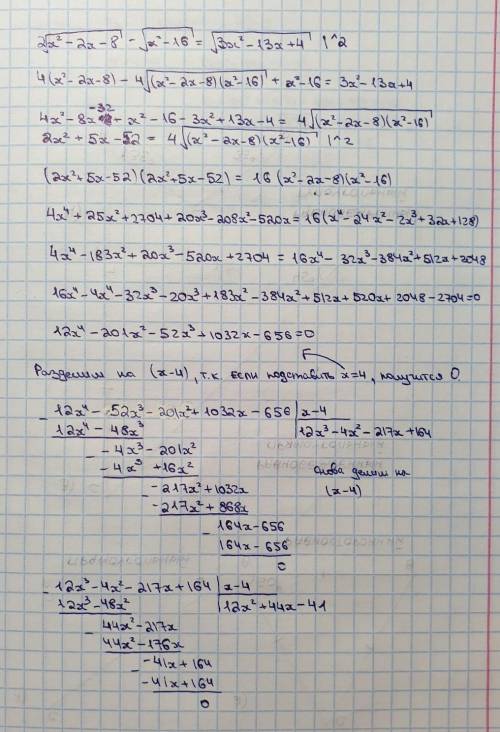 2√(x²-2x-8) - √(x²-16) = √(3x²-13x+4) |^2
4(x²-2x-8) - 4√((x²-2x-8)(x²-16)) + x²-16 = 3x²-13x+4
4x²-8x-32 + x²-16-3x²+13x-4 = 4√((x²-2x-8)(x²-16))
2x²+5x-52 = 4√((x²-2x-8)(x²-16)) |^2
(2x²+5x-52)(2x²+5x-52) = 16(x²-2x-8)(x²-16)
4x⁴+25x²+2704+20x³-208x²-520x = 16(x⁴-24x²-2x³+32x+128)
4x⁴-183x²+20x³-520x+2704 = 16x⁴-32x³-384x²+512x+2048
16x⁴-4x⁴-32x³-20x³+183x²-384x²+512x+520x+2048-2704=0
12x⁴-201x²-52x³+1032x-656=0
Разделим на (x-4), т.к. если подставить x=4, получится 0
12x⁴-52x³-201x²+1032x-656 | x-4
12x⁴-48x³ | 12x³-4x²-217x+164
-4x³-201x²
-4x³+16x²
Снова делим на
(x-4)
-217x²+1032x
-217x²+868x
164x-656
164x-656
0
12x³-4x²-217x+164 | x-4
12x³-48x² | 12x²+44x-41
44x²-217x
44x²-176x
-41x+164
-41x+164
0